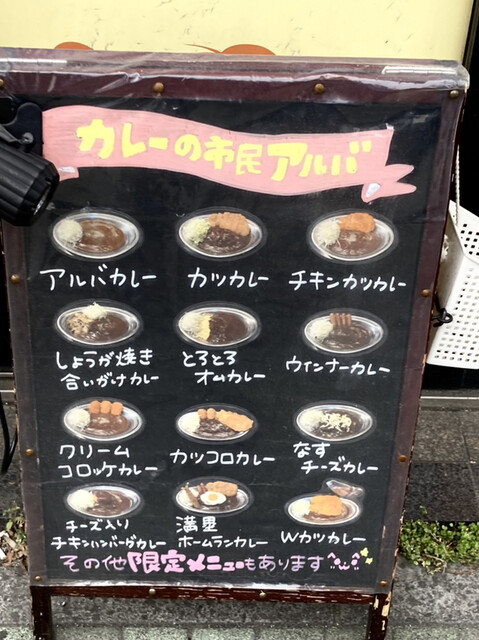 カレーの市民アルバ
アルバカレー
カツカレー
チキンカツカレー
しょうが焼き
合いがけカレー
とろとろ
オムカレー
ウィンナーカレー
クリーム
コロッケカレー
カツコロカレー
なす
チーズカレー
チーズ入り
チキンハンバーグカレー
満塁
ホームランカレー
Wカツカレー
その他限定メニューもあります^ω^